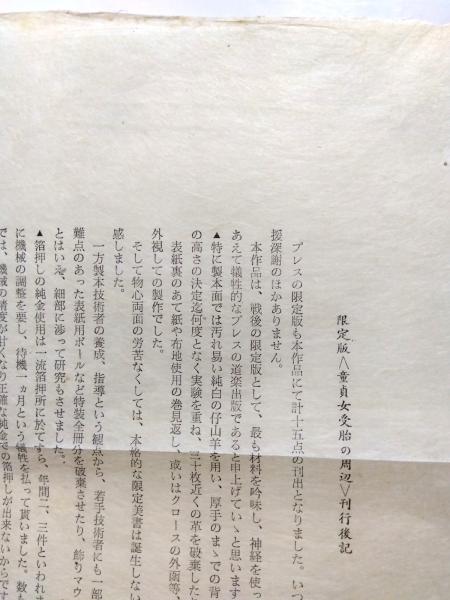 限定版〈童貞女受胎の周辺〉刊行後記
プレスの限定版も本作品にて計十五点の刊出となりました。いつ
援深謝のほかありません。
本作品は、戦後の限定版として、最も材料を吟味し、神経を使っ
あえて犠牲的なプレスの道楽出版であると申上げていゝと思います
▲特に製本面では汚れ易い純白の仔山羊を用い、厚手のまゝでの背
の高さの決定迄何度となく実験を重ね、三十枚近くの革を破棄した
表紙裏のあて紙や布地使用の巻見返し、或いはクロースの外函等、
外視しての製作でした。
そして物心両面の労苦なくしては、本格的な限定美書は誕生しない
感しました。
一方製本技術者の養成、指導という観点から、若手技術者にも一部
難点のあった表紙用ボールなど特装全冊分を破棄させたり、飾りマウ
とはいえ、細部に渉って研究もさせました。
▲箔押しの純金使用は一流箔押所に於てすら、年間二、三件といわれま
に機械の調整を要し、待機一ヵ月という犠牲を払って貰いました。数も
では、機械の精度が甘くなり正確な純金での箔押しが出来ないからです